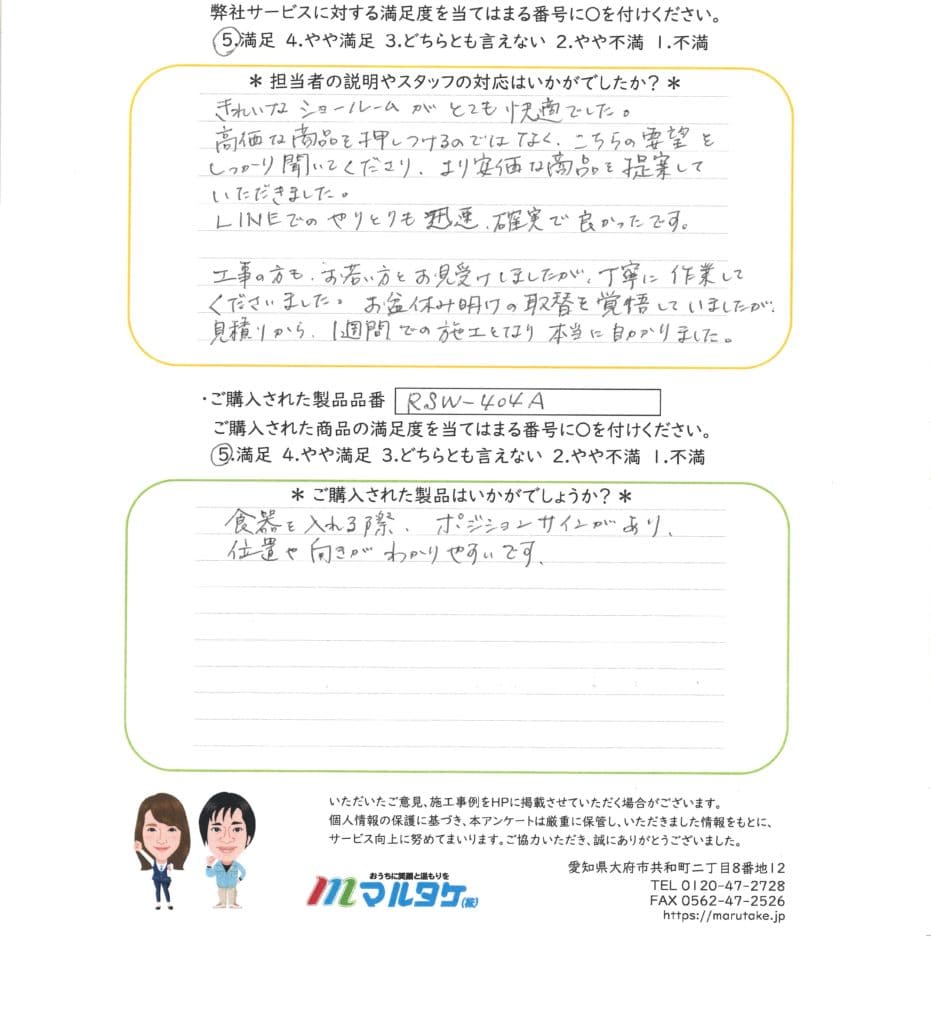 弊社サービスに対する満足度を当てはまる番号に〇を付けください。
5.満足 4.やや満足 3.どちらとも言えない 2.やや不満 1.不満
＊ 担当者の説明やスタッフの対応はいかがでしたか？＊
きれいな ショールームが とても 快適でした。
高価な商品を押しつけるのではなく、こちらの要望を
しっかり聞いてくださり、より安価な商品を提案して
いただきました。
LINEでの やりとりも 迅速、確実で 良かったです。
工事の方も、お若い方とお見受けしましたが、丁寧に 作業して
くださいました。 お盆休み明けの取替を覚悟していましたが、
見積りから、1週間での施工となり 本当に助かりました。
・ご購入された製品品番 RSW-404A
ご購入された商品の満足度を当てはまる番号に〇を付けください。
5.満足 4.やや満足 3.どちらとも言えない 2.やや不満 1.不満
＊ ご購入された製品はいかがでしょうか？＊
食器を入れる際、ポジションサインがあり、
位置や向きが わかりやすいです、
いただいたご意見、施工事例をHPに掲載させていただく場合がございます。
個人情報の保護に基づき、本アンケートは厳重に保管し、いただきました情報をもとに、
サービス向上に努めてまいります。ご協力いただき、誠にありがとうございました。
おうちに笑顔と温もりを
マルタケ(株)
愛知県大府市共和町二丁目8番地12
TEL 0120-47-2728
FAX 0562-47-2526
https://marutake.jp